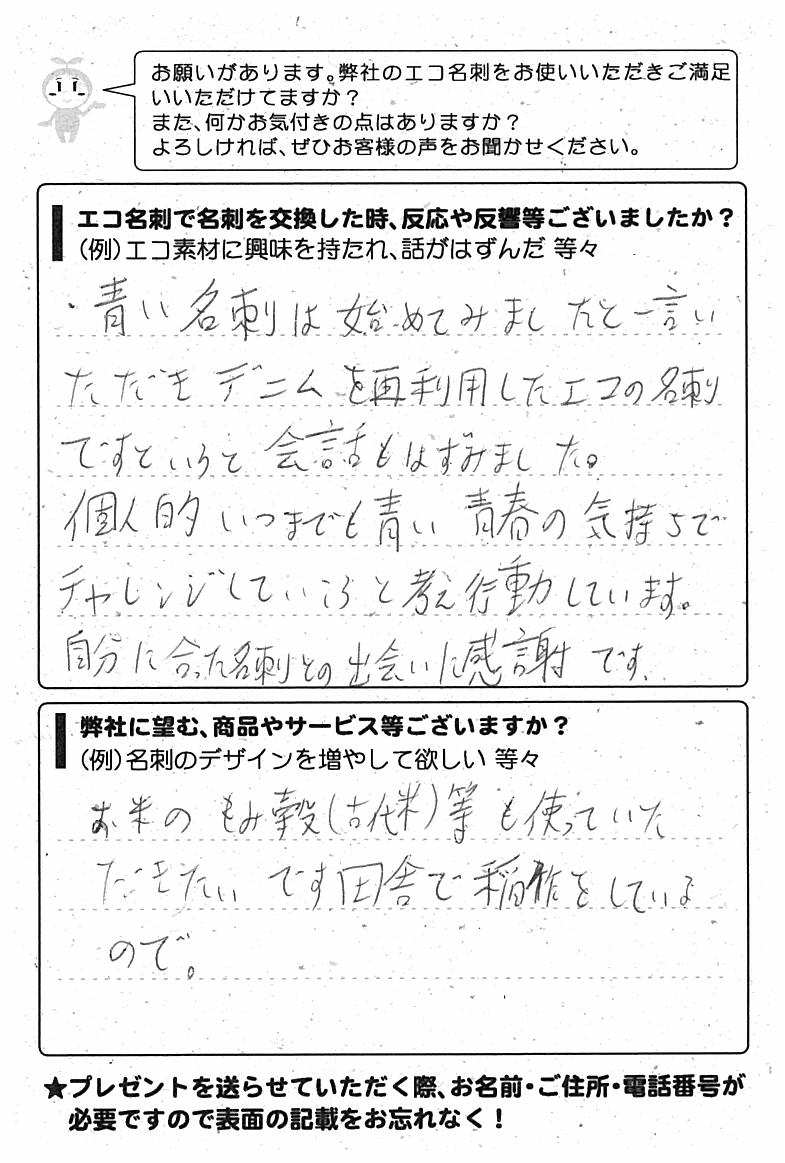 お願いがあります。弊社のエコ名刺をお使いいただきご満足
いいただけてますか？
また、何かお気付きの点はありますか？
よろしければ、ぜひお客様の声をお聞かせください。
エコ名刺で名刺を交換した時、反応や反響等ございましたか？
（例）エコ素材に興味を持たれ、話がはずんだ 等々
・青い名刺は始めてみましたと一言い
ただきデニムを再利用したエコの名刺
ですというと会話もはずみました。
個人的いつまでも青い青春の気持ちで
チャレンジしていこうと考え行動しています。
自分に合った名刺との出会いに感謝です。
弊社に望む、商品やサービス等ございますか？
（例）名刺のデザインを増やして欲しい 等々
お米のもみ殻（古代米）等も使っていた
だきたいです田舎で稲作をしている
ので。
★プレゼントを送らせていただく際、お名前・ご住所・電話番号が
必要ですので表面の記載をお忘れなく！